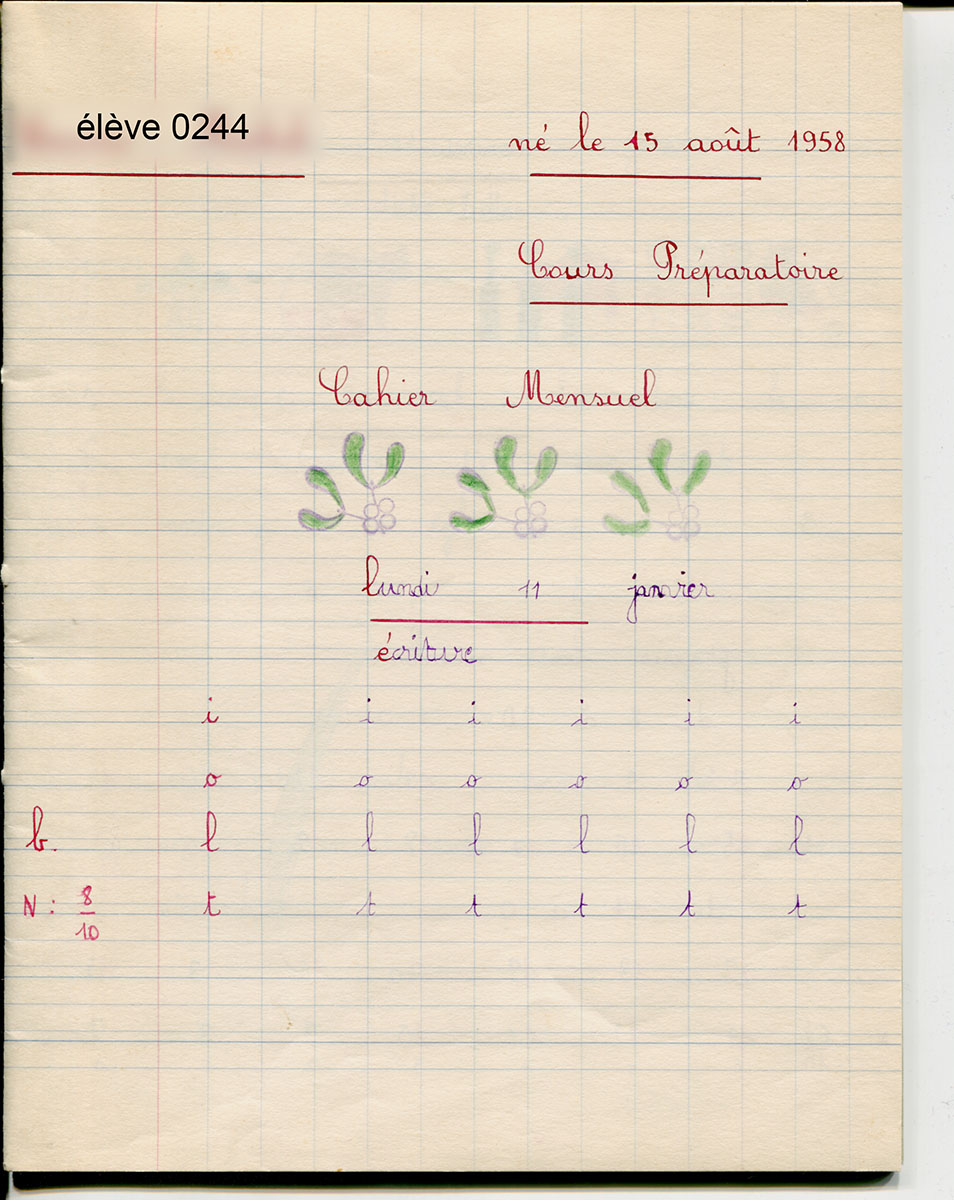 élève 0244
né le 15 août 1958
Cours Préparatoire
Cahier Mensuel
lundi 11 janvier
écriture
i i i i i i
o o o o o o
b. l l l l l l
N : 8/10 t t t t t t